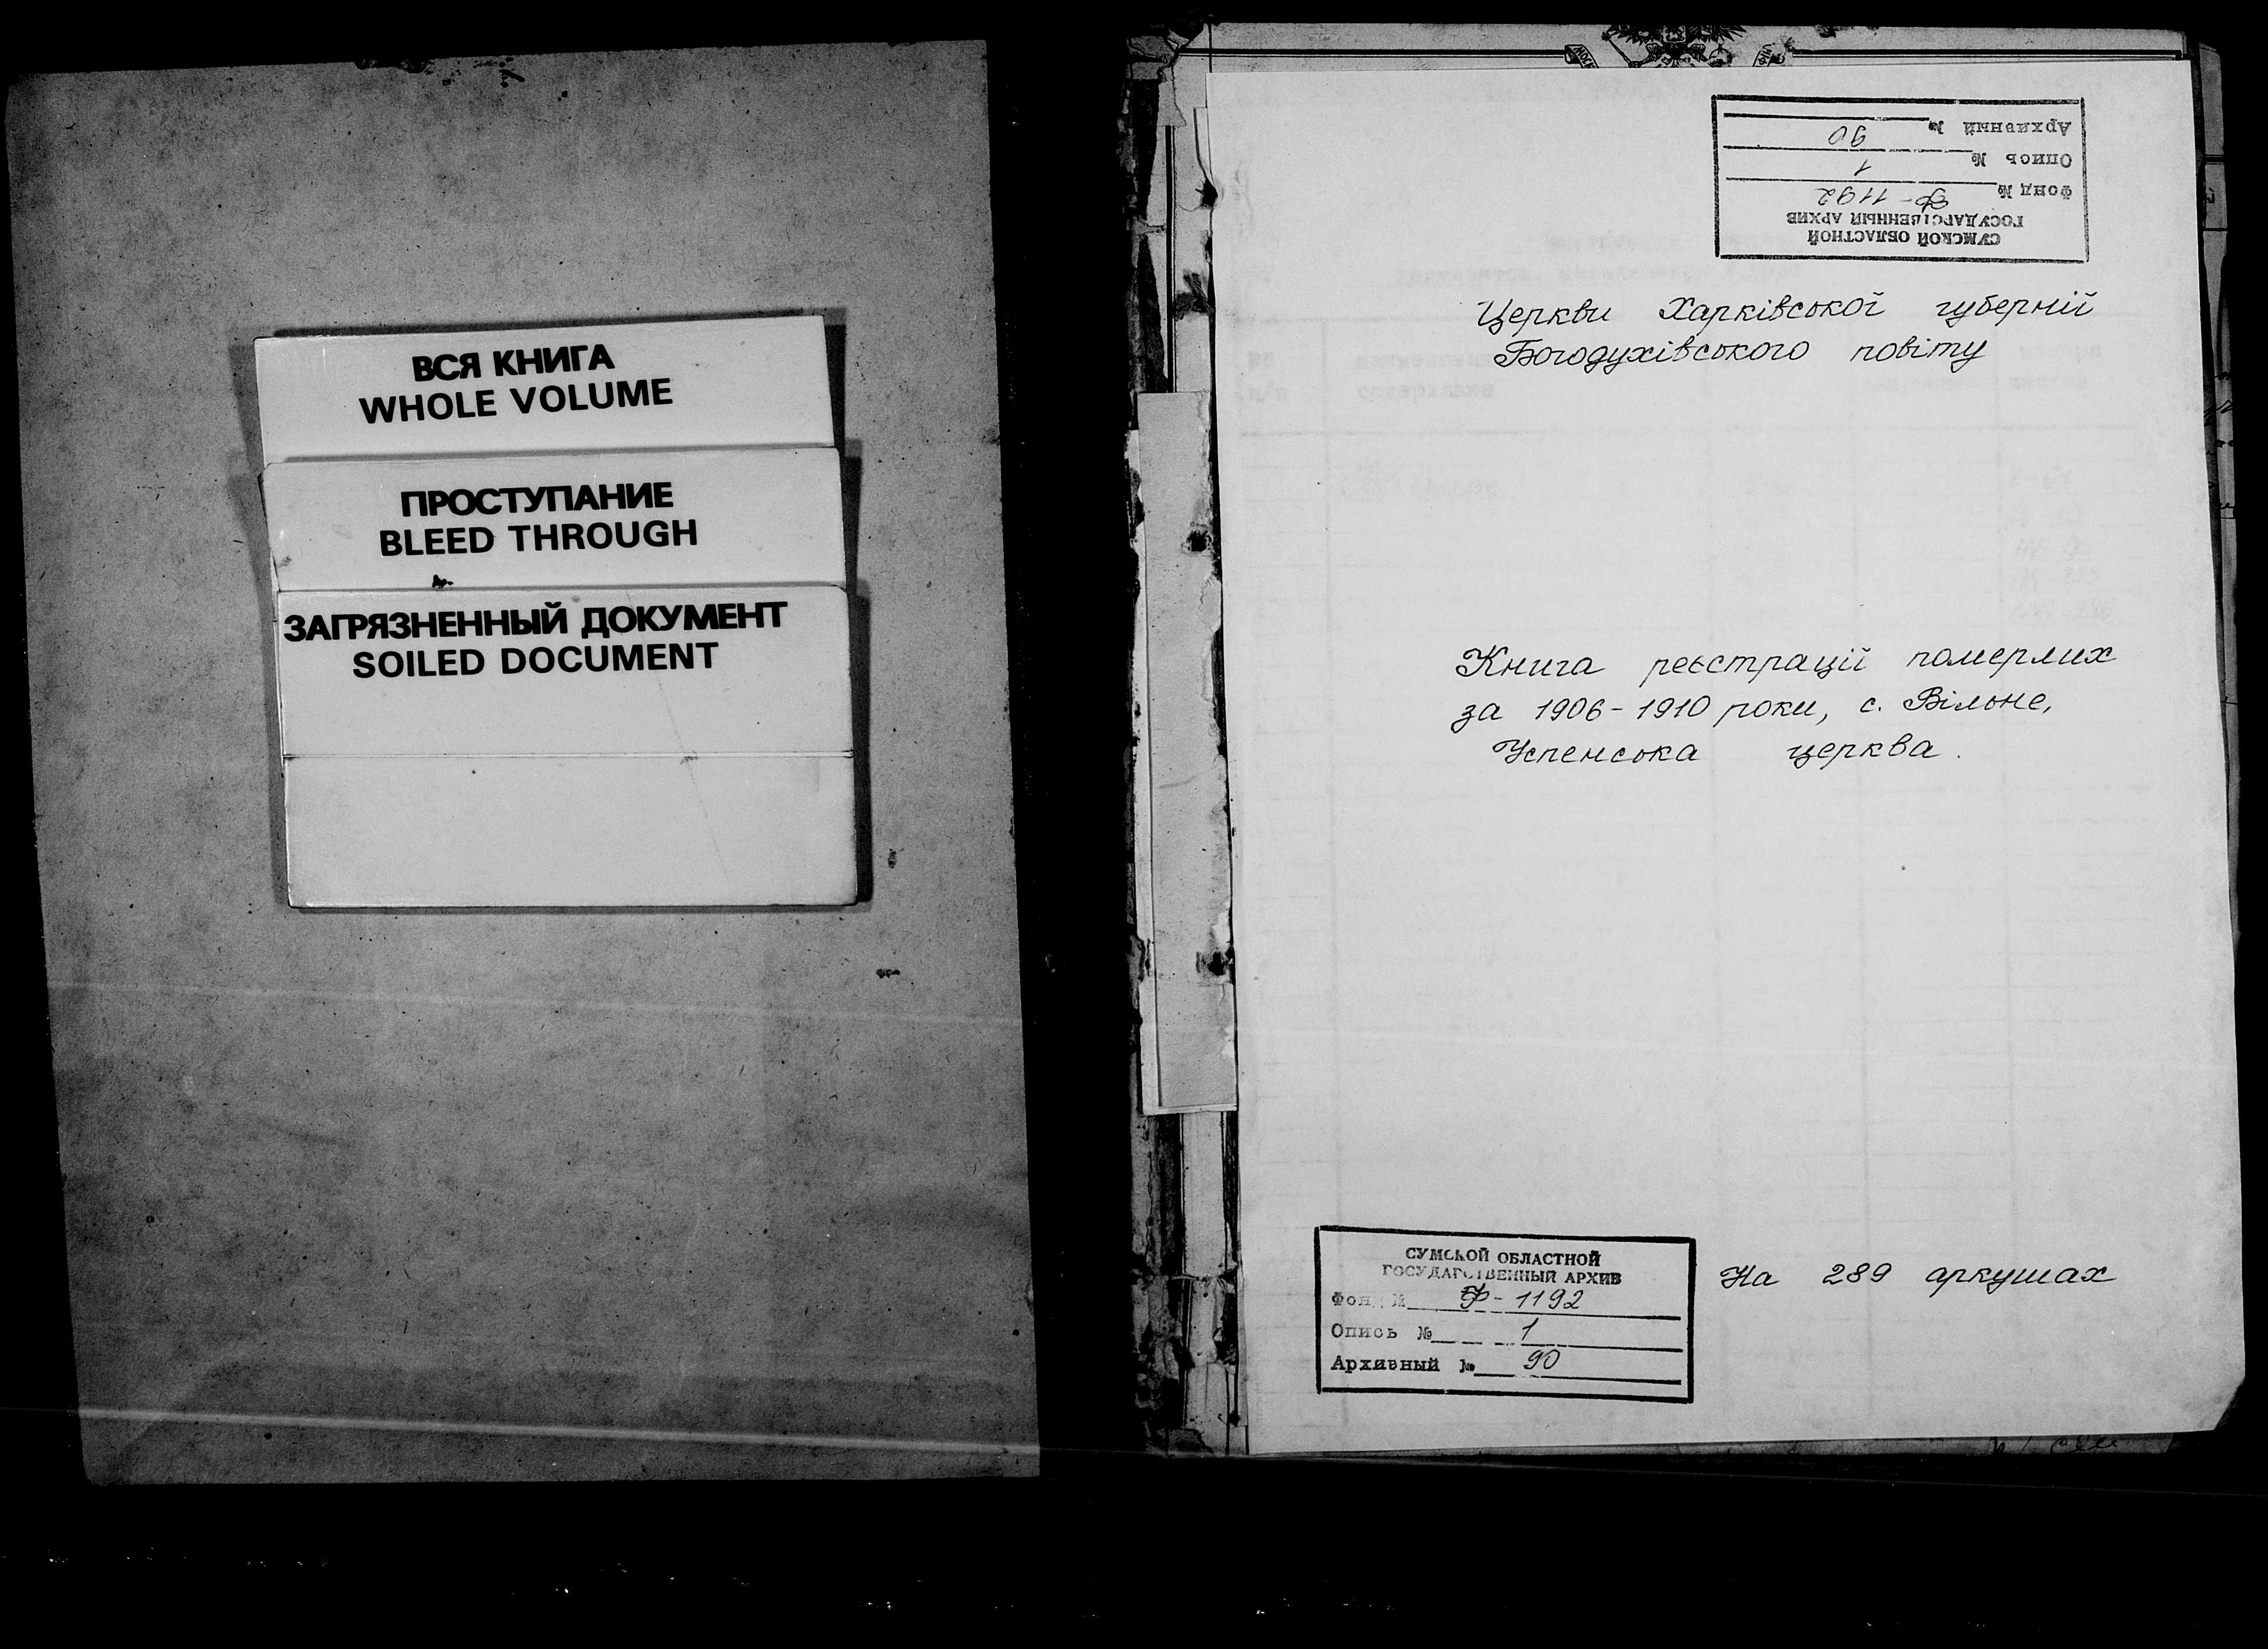 ВСЯ КНИГА
WHOLE VOLUME
ПРОСТУПАНИЕ
BLEED THROUGH
ЗАГРЯЗНЕННЫЙ ДОКУМЕНТ
SOILED DOCUMENT
СУМСКОЙ ОБЛАСТНОЙ
ГОСУДАРСТВЕННЫЙ АРХИВ
Фонд № Ф-1192
Опись № 1
Архивный № 90
Церкви Харківської губернії
Богодухівського повіту
Книга реєстрації померлих
за 1906-1910 роки, с. Вільне,
Успенська церква.
СУМСКОЙ ОБЛАСТНОЙ
ГОСУДАРСТВЕННЫЙ АРХИВ
Фонд № Ф-1192
Опись № 1
Архивный № 90
На 289 аркушах